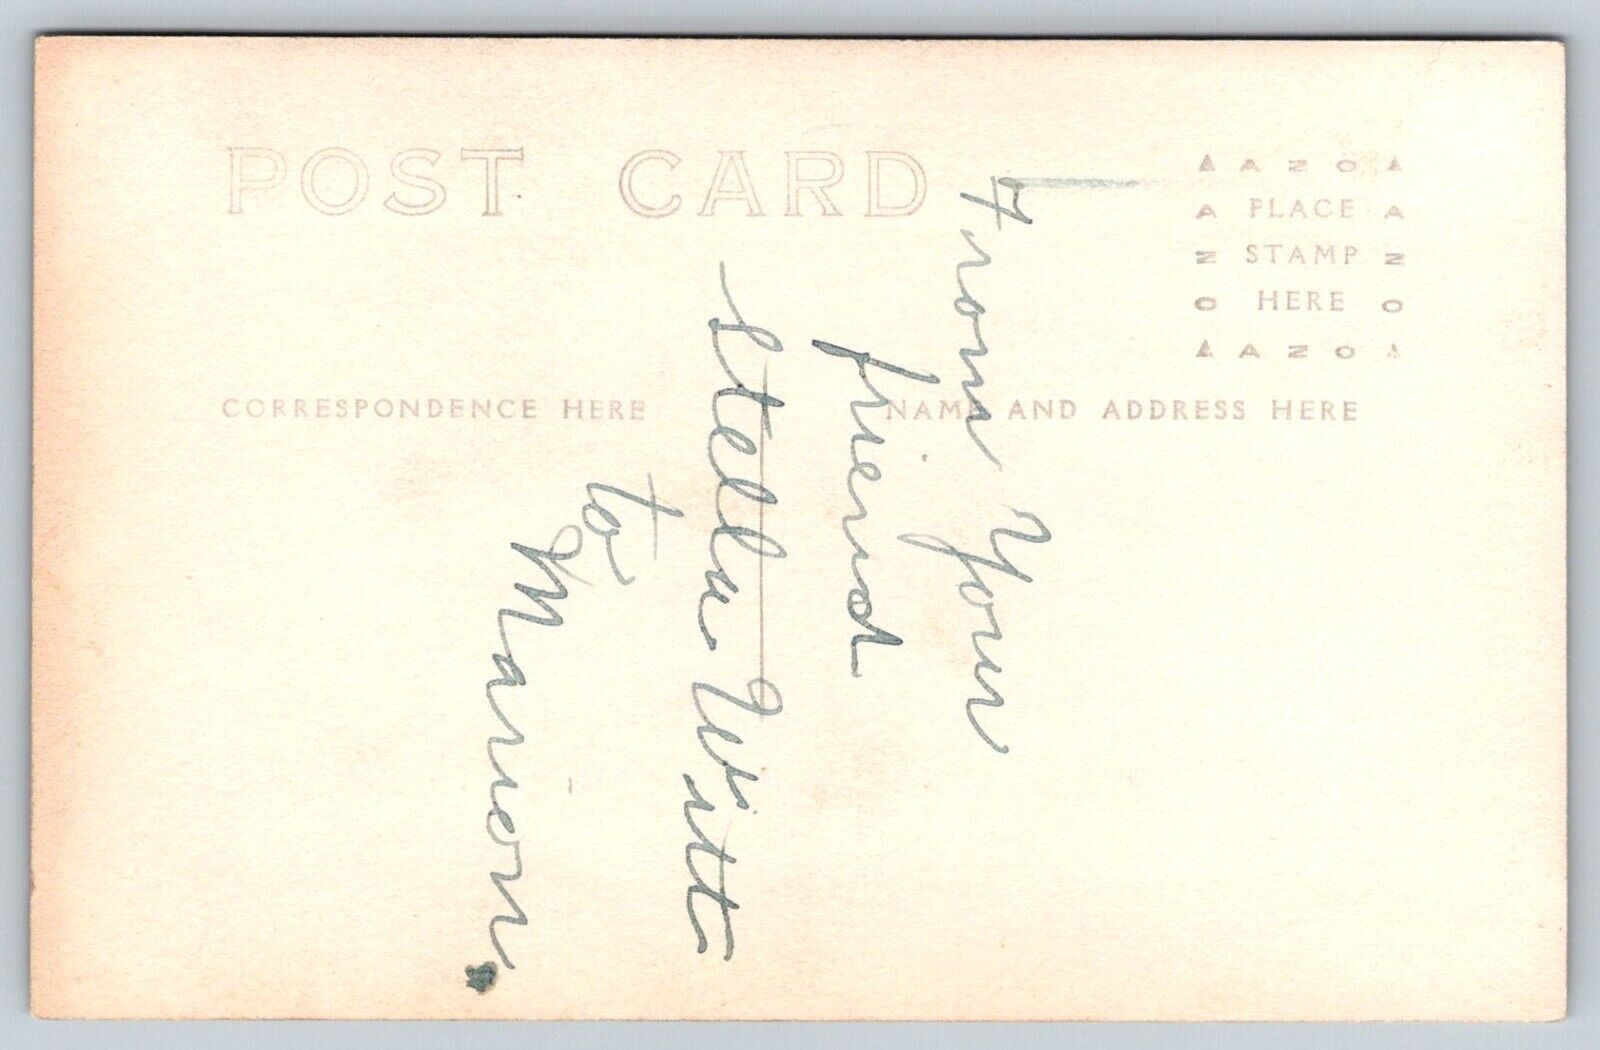 POST CARD
AZO
PLACE
STAMP
HERE
AZO
AZO
AZO
CORRESPONDENCE HERE
NAME AND ADDRESS HERE
From Your
friend
Stella Witt
to
Marion.